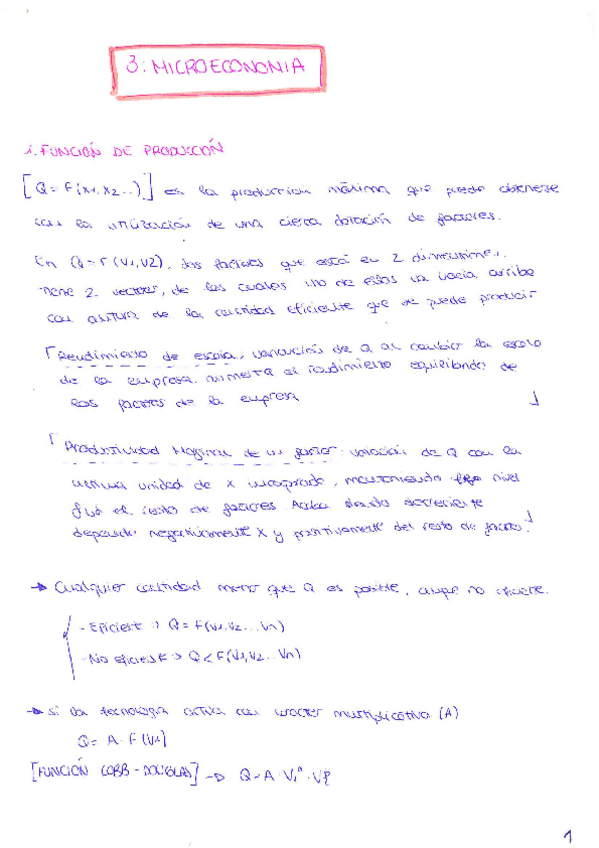 3: MICROECONOMIA
1. FUNCIÓN DE PRODUCCIÓN
[Q = F(x1, x2...)] es la produccion máxima que puede obtenerse
con la utilización de una cierta dotación de factores.
En Q = F(V1, V2), los factores que está en 2 dimensiones.
Tiene 2 vectores, de los cuales uno de ellos va hacia arriba
con altura de la cantidad eficiente que se puede producir
Rendimiento de escala, variación de Q al cambiar la escala
de la empresa. aumenta el rendimiento equilibrado de
los factores de la empresa
Productividad Marginal de un factor: variación de Q con la
ultima unidad de X incorporado, manteniendo nivel
fijo el resto de factores Acaba siendo decreciente
depende negativamente X y positivamente del resto de factores.
→ Cualquier cantidad menor que Q es posible, aunque no eficiente.
- Eficiente → Q = F(V1, V2 ... Vn)
- No eficiente → Q < F(V1, V2... Vn)
→ si la tecnologia actua con caracter multiplicativo (A)
Q = A · F(Vi)
[FUNCIÓN COBB - DOUGLAS] → Q = A ·
1